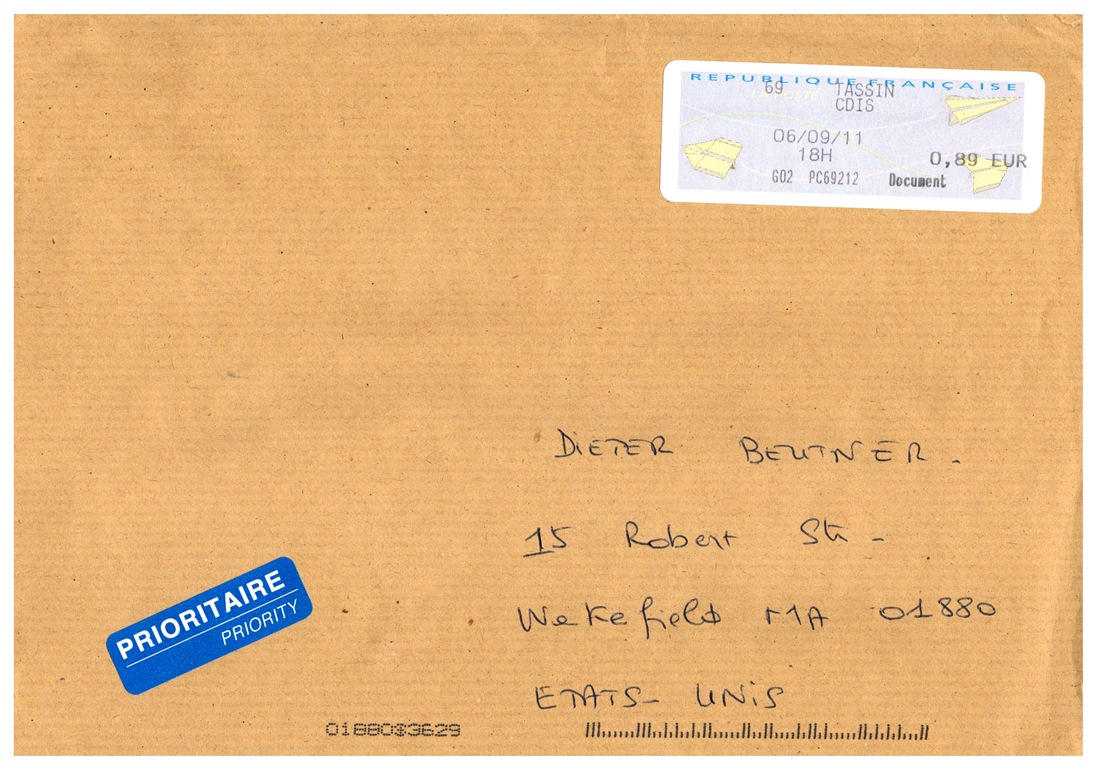 REPUBLIQUE FRANÇAISE
LA POSTE
69 TASSIN
CDIS
06/09/11
18H
0,89 EUR
G02 PC69212 Document
DIETER BEUTNER.
15 Robert Str -
Wakefield MA 01880
ETATS-UNIS
PRIORITAIRE
PRIORITY
01880$3629